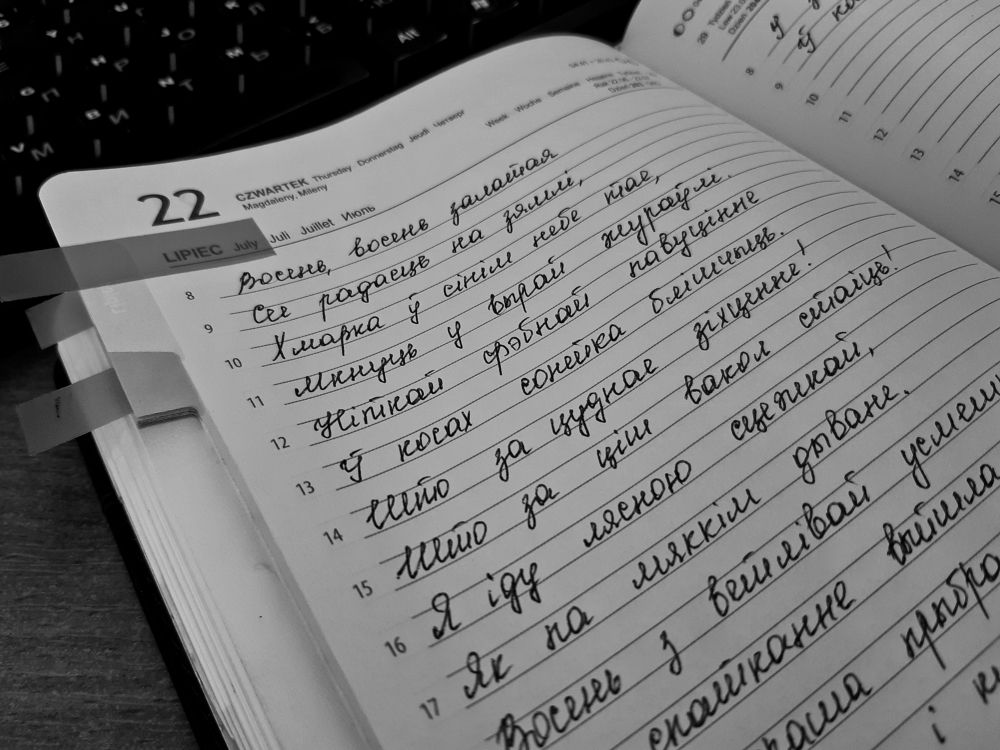 22
CZWARTEK Thursday Donnerstag Jeudi Четверг
Magdaleny, Mileny
Week Woche Semaine Неделя
LIPIEC July Juli Juillet Июль
8 Восень, восень залатая
9 Сее радасць на зямлі,
10 Хмарка ў сінім небе тае,
11 Мкнуць у вырай жураўлі.
12 Ніткай срэбнай павуцінне
13 Ў косах сонейка блішчыць.
14 Што за цуднае зіхценне!
15 Што за ціш вакол стаіць!
16 Я іду лясною сцежкай,
17 Як на мяккім дыване.
Восень з ветлівай
спатканне выйшла
прыбра
і
8
9
10
11
12
13
14